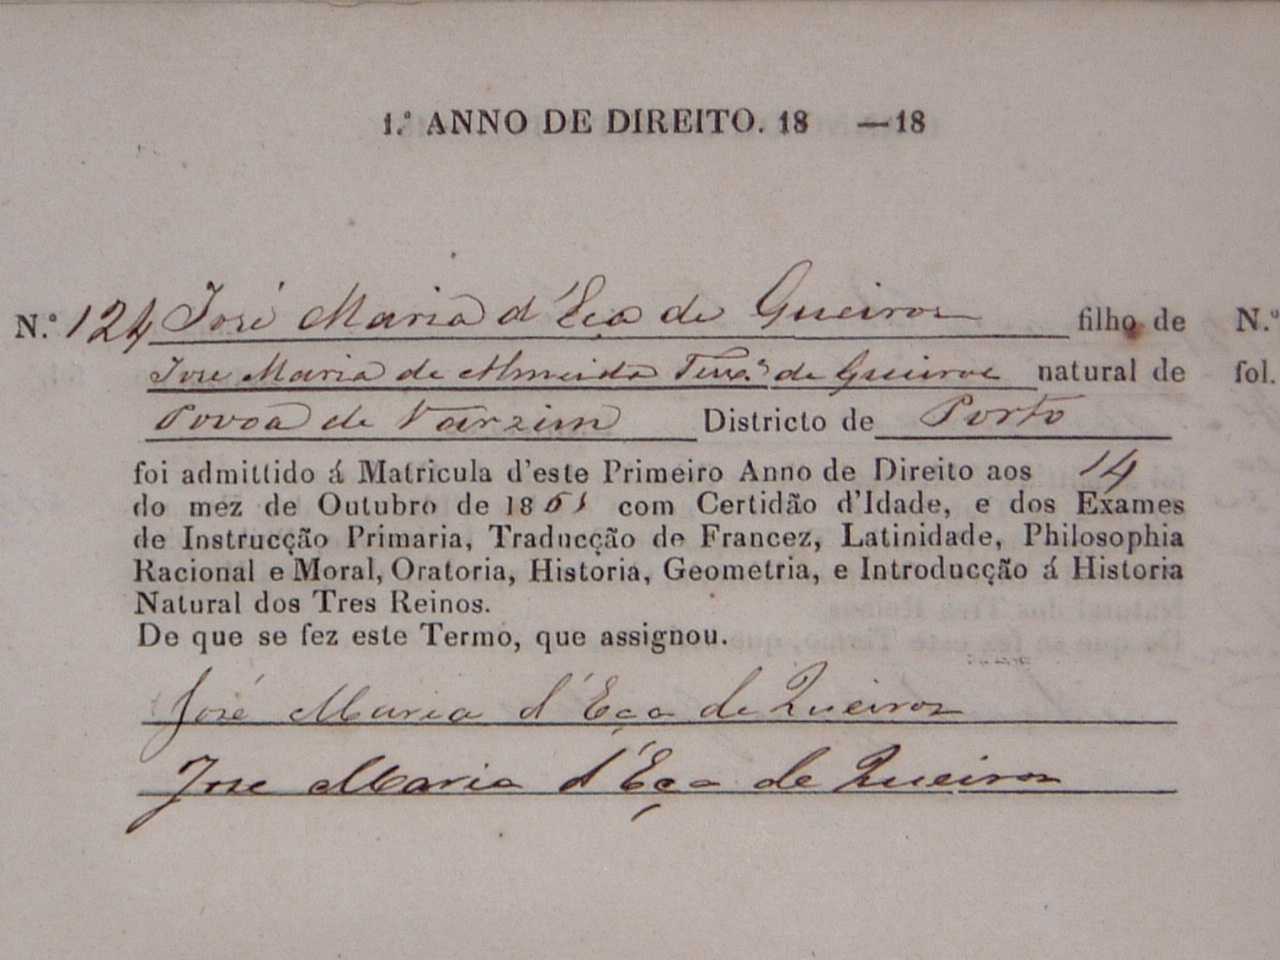 1.º ANNO DE DIREITO. 18 — 18
N.º 124 José Maria d'Eça de Queiroz filho de
José Maria de Almeida Teixª de Queiroz natural de
Povoa de Varzim Districto de Porto
foi admittido á Matricula d'este Primeiro Anno de Direito aos 14
do mez de Outubro de 1861 com Certidão d'Idade, e dos Exames
de Instrucção Primaria, Traducção de Francez, Latinidade, Philosophia
Racional e Moral, Oratoria, Historia, Geometria, e Introducção á Historia
Natural dos Tres Reinos.
De que se fez este Termo, que assignou.
José Maria d'Eça de Queiroz
Jose Maria d'Eça de Queiroz
N.º
fol.